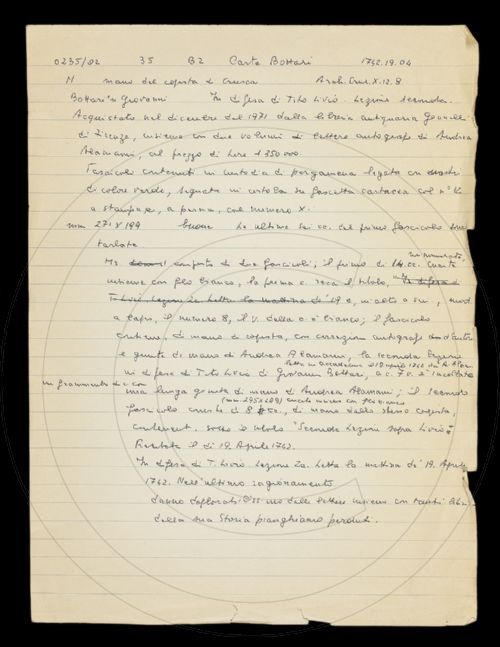 0235/02 35 B2 Carte Bottari 1742.19.04
M mano del copista di Crusca Arch. Crus. X.12.8
Bottari Giovanni In difesa di Tito Livio. Lezione seconda.
Acquistato nel dicembre del 1971 dalla libreria antiquaria Gonnelli
di Firenze, insieme con due volumi di lettere autografe di Andrea
Alamanni, al prezzo di lire 1350.000.
Fascicolo contenuti in custodia di pergamena legata con
di colore verde, segnata in
a stampa e, a penna, col numero X.
mm 271 x 199 buono Le ultime sei cc. del primo fascicolo sono
tarlate
Ms. composto di due fascicoli; il primo di 14 cc. cucite
non numerate,
insieme con filo bianco, la prima c. reca il titolo, In difesa di
T. Livio Lezione 2a letta la mattina de' 19 e, in alto a sn,
a lapis, il numero 8, il v. della c è bianco; il fascicolo
di mano di copista, con correzioni autografe
e giunte di mano di Andrea Alamanni, la seconda lezione
letta in Accademia il 19 aprile 1742 da A. Alam.
in difesa di Tito Livio di Giovanni Bottari, a c. 7 v. è incollato
un frammento di c con
una lunga giunta di mano di Andrea Alamanni; il secondo
(mm. 295x209) cucite insieme con filo bianco
fascicolo consta di 8 cc., di mano dello stesso copista,
contenent. sotto il titolo "Seconda Lezione sopra Livio
Recitata il dì 19. Aprile 1742.
In difesa di T. Livio Lezione 2a. Letta la mattina de' 19. Aprile
1742. Nell'ultimo ragionamento
danno delle lettere insieme con tanti libri
della sua Storia pianghiamo perduti.